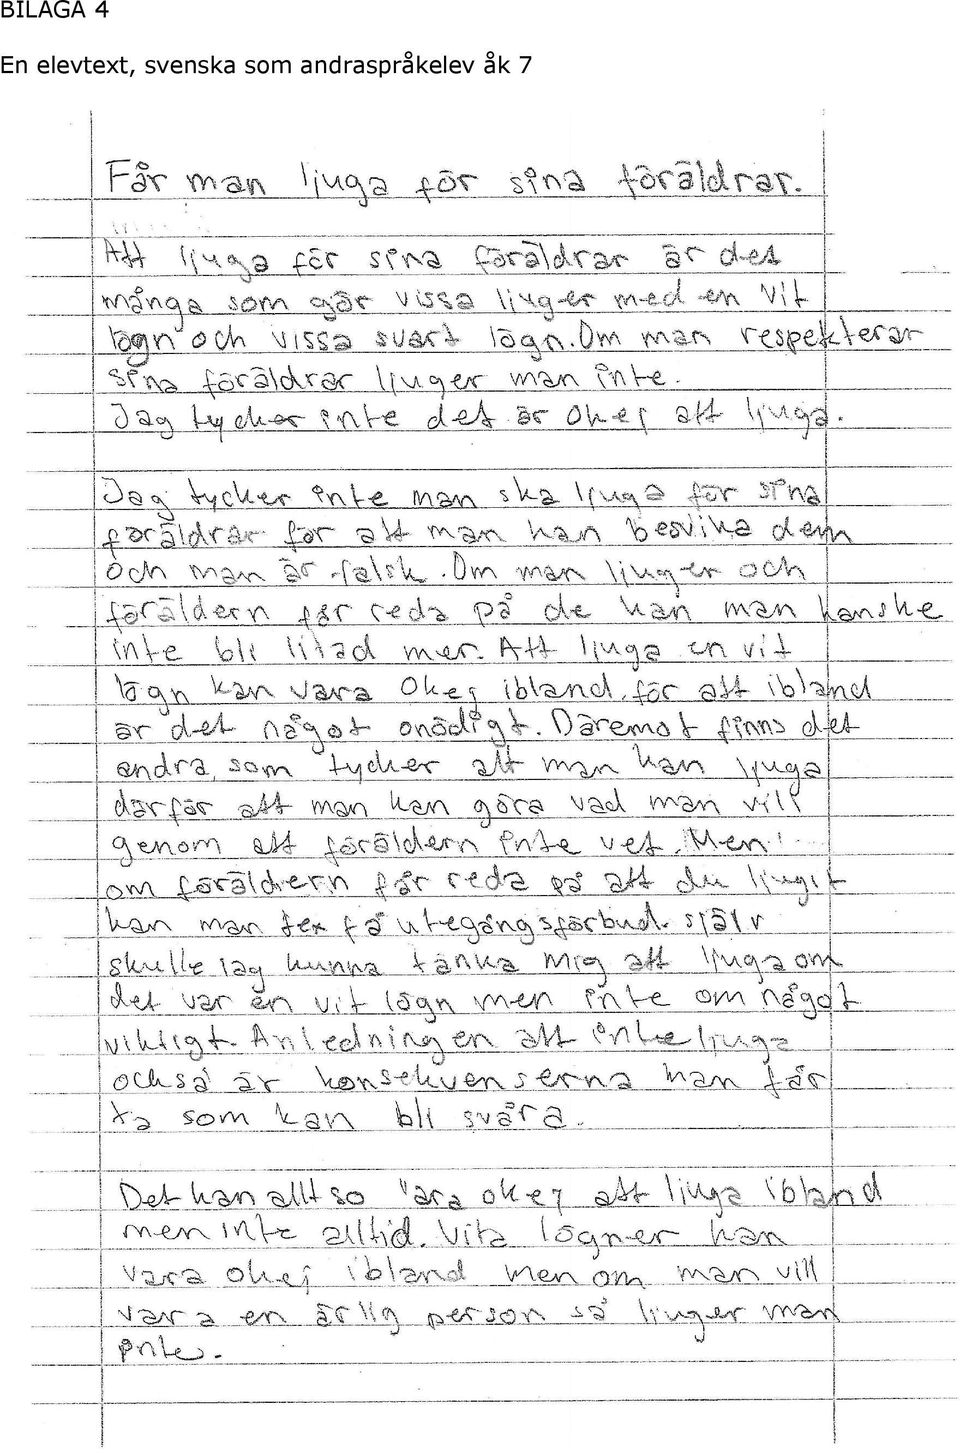 BILAGA 4
En elevtext, svenska som andraspråkelev åk 7
Får man ljuga för sina föräldrar.
Att ljuga för sina föräldrar är det
många som gör vissa ljuger med en vit
lögn och vissa svart lögn. Om man respekterar
sina föräldrar ljuger man inte.
Jag tycker inte det är okej att ljuga.
Jag tycker inte man ska ljuga för sina
föräldrar för att man kan besvika dem
och man är falsk. Om man ljuger och
föräldern får reda på de kan man kanske
inte bli litad mer. Att ljuga en vit
lögn kan vara okej ibland, för att ibland
är det något onödigt. Däremot finns det
andra, som tycker att man kan ljuga
därför att man kan göra vad man vill
genom att föräldern inte vet. Men!
om föräldern får reda på att du ljugit
kan man tex få utegångsförbud. själv
skulle jag kunna tänka mig att ljuga om
det var en vit lögn men inte om något
viktigt. Anledningen att inte ljuga
också är konsekvenserna man får
ta som kan bli svåra.
Det kan alltso vara okej att ljuga ibland
men inte alltid. Vita lögner kan
vara okej ibland men om man vill
vara en ärlig person så ljuger man
inte.